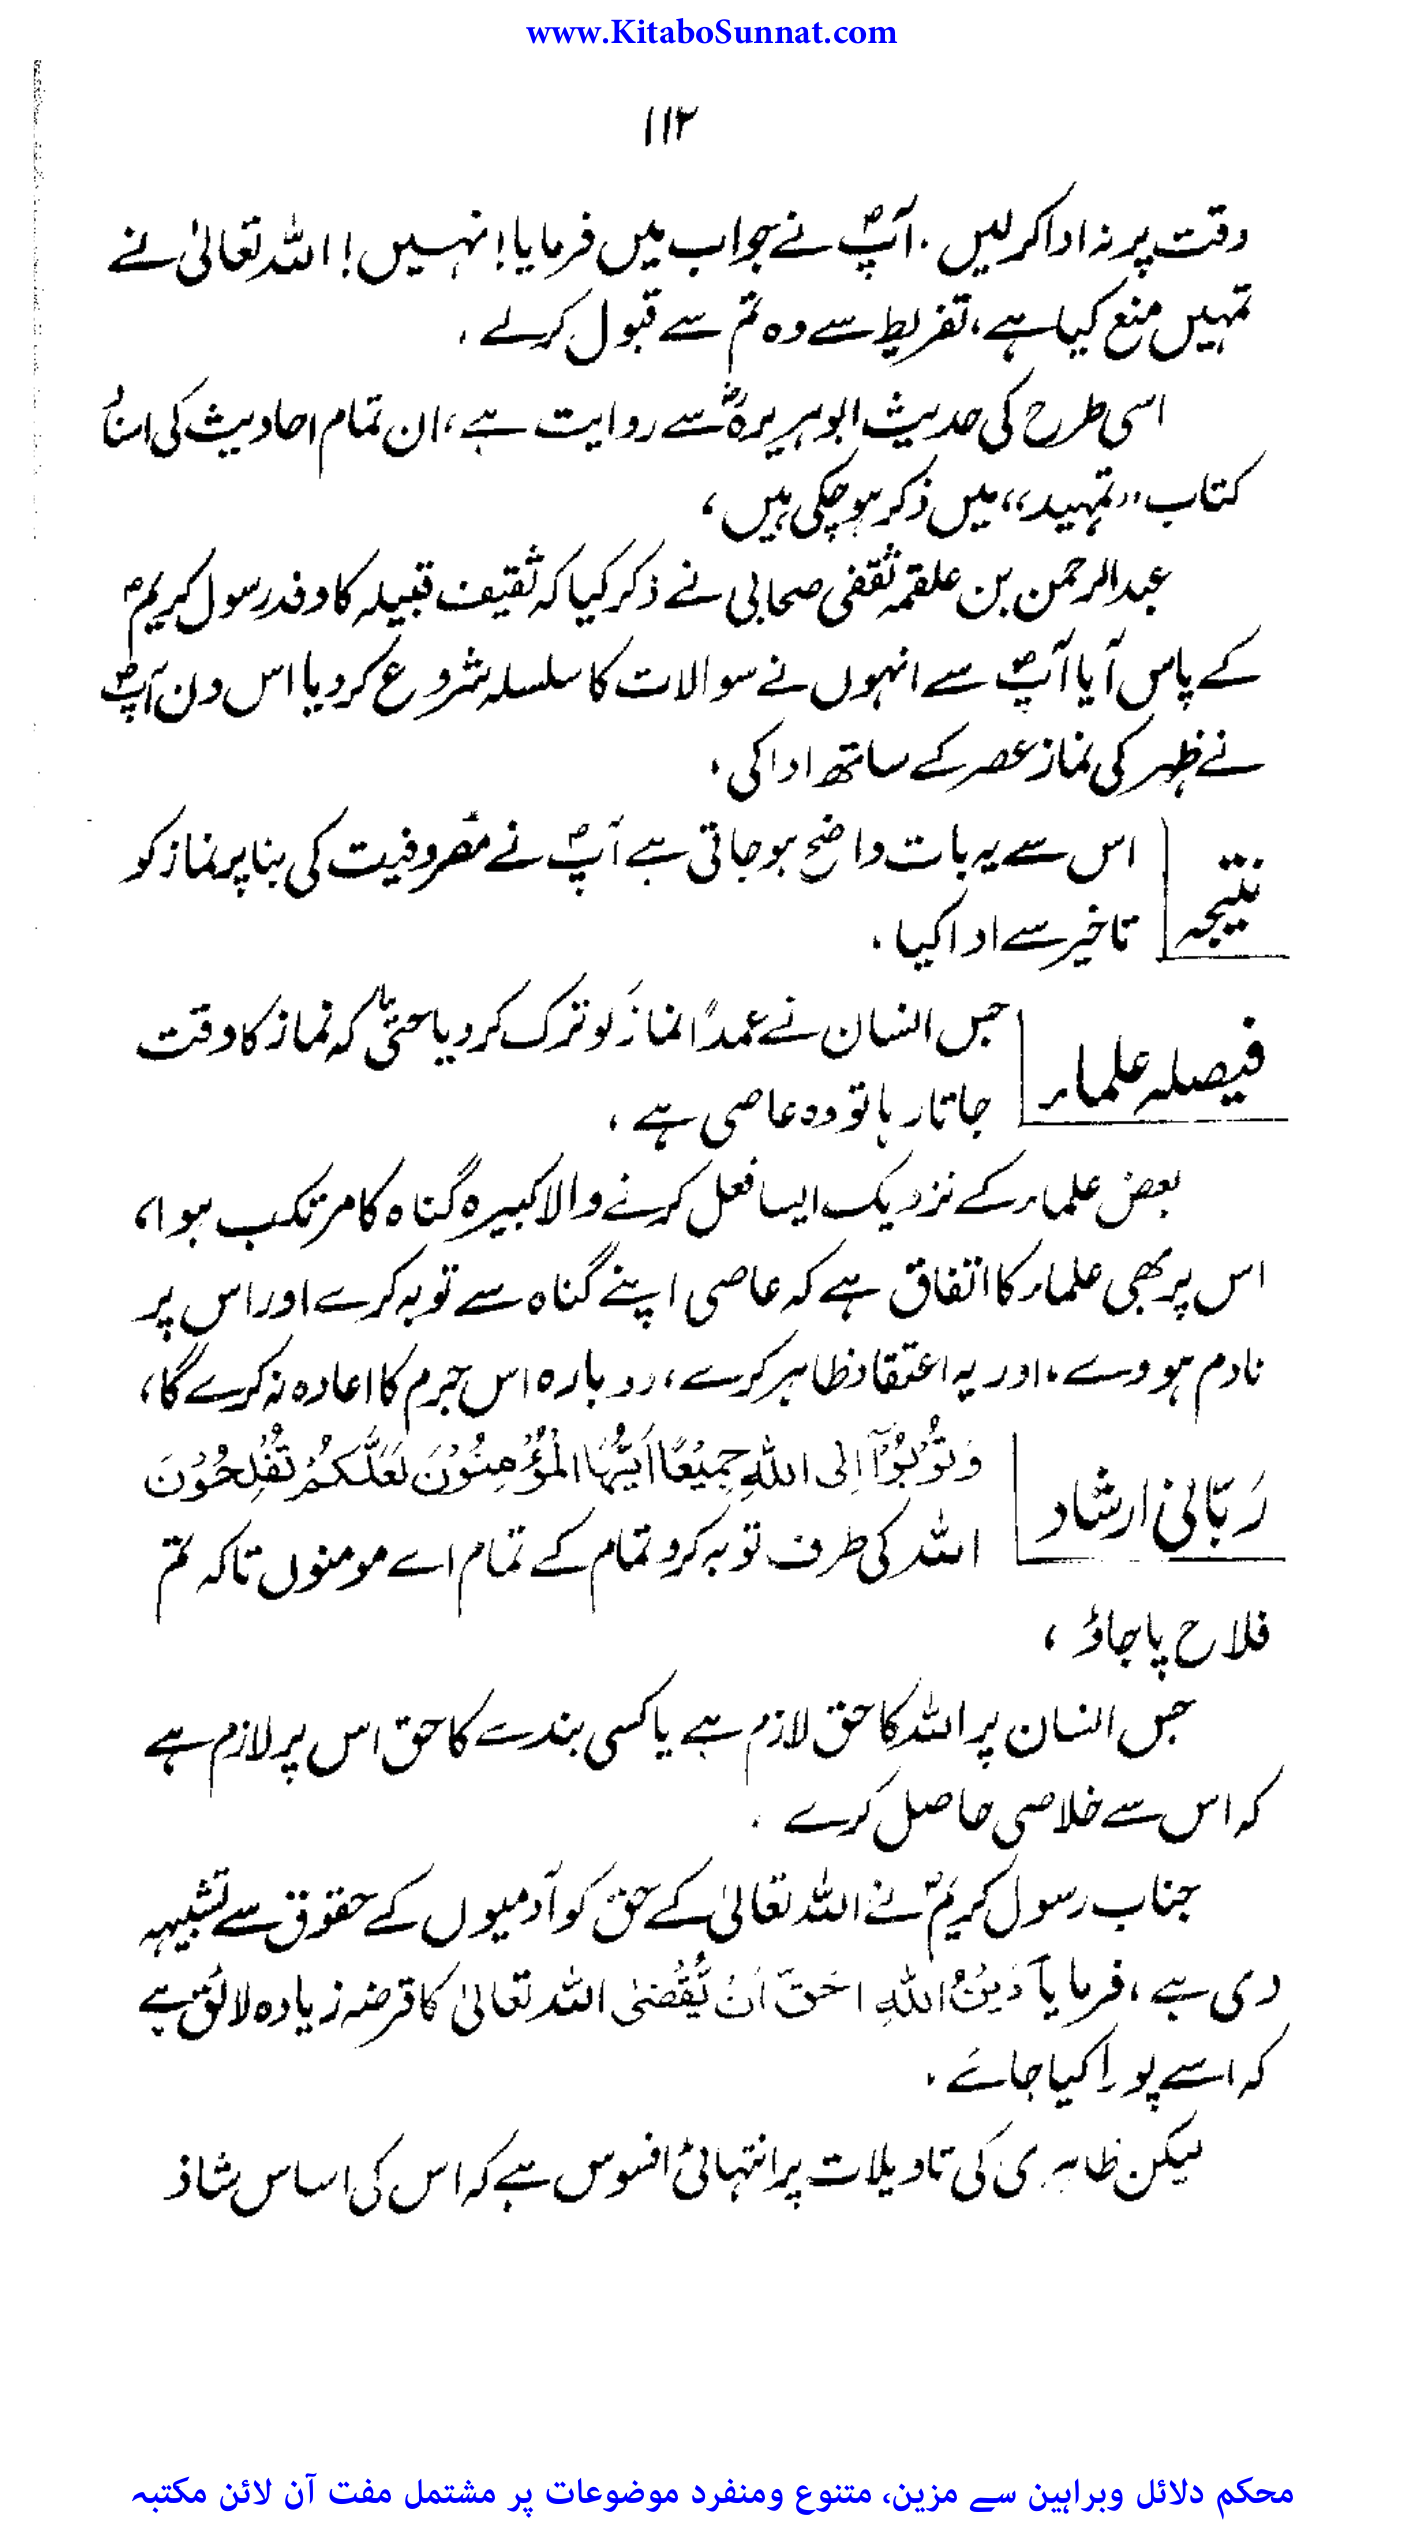 www.KitaboSunnat.com
۱۱۲
وقت پر نہ ادا کرلیں ۔ آپؐ نے جواب میں فرمایا! نہیں! اللہ تعالیٰ نے
تمہیں منع کیا ہے، تفریط سے وہ تم سے قبول کرلے ۔
اسی طرح کی حدیث ابو ہریرہؓ سے روایت ہے، ان تمام احادیث کی اسناد
کتاب ’’تمہید‘‘ میں ذکر ہو چکی ہیں،
عبدالرحمن بن علقمہ ثقفی صحابی نے ذکر کیا کہ ثقیف قبیلہ کا وفد رسول کریمؐ
کے پاس آیا آپؐ سے انہوں نے سوالات کا سلسلہ شروع کردیا اس دن آپؐ
نے ظہر کی نماز عصر کے ساتھ ادا کی ۔
نتیجہ اس سے یہ بات واضح ہو جاتی ہے آپؐ نے مصروفیت کی بنا پر نماز کو
تاخیر سے ادا کیا ۔
فیصلہ علماء جس انسان نے عمداً نماز کو ترک کردیا حتیٰ کہ نماز کا وقت
جاتا رہا تو وہ عاصی ہے ،
بعض علماء کے نزدیک ایسا فعل کرنے والا کبیرہ گناہ کا مرتکب ہوا،
اس پر بھی علماء کا اتفاق ہے کہ عاصی اپنے گناہ سے توبہ کرے اور اس پر
نادم ہووے، اور یہ اعتقاد ظاہر کرے، دوبارہ اس جرم کا اعادہ نہ کرے گا،
رَبّانی ارشاد وَتُوْبُوْٓا اِلی اللہِ جَمِیْعًا اَیُّہَا الْمُؤْمِنُوْنَ لَعَلَّکُمْ تُفْلِحُوْنَ
اللہ کی طرف توبہ کرو تمام کے تمام اے مومنوں تاکہ تم
فلاح پا جاؤ ،
جس انسان پر اللہ کا حق لازم ہے یا کسی بندے کا حق اس پر لازم ہے
کہ اس سے خلاصی حاصل کرے ۔
جناب رسول کریمؐ نے اللہ تعالیٰ کے حق کو آدمیوں کے حقوق سے تشبیہہ
دی ہے، فرمایا دَیْنُ اللہِ اَحَقّ اَنْ یُّقْضیٰ اللہ تعالیٰ کا قرضہ زیادہ لائق ہے
کہ اسے پورا کیا جائے ۔
لیکن ظاہری کی تاویلات پر انتہائی افسوس ہے کہ اس کی اساس شاذ
محکم دلائل وبراہین سے مزین، متنوع ومنفرد موضوعات پر مشتمل مفت آن لائن مکتبہ